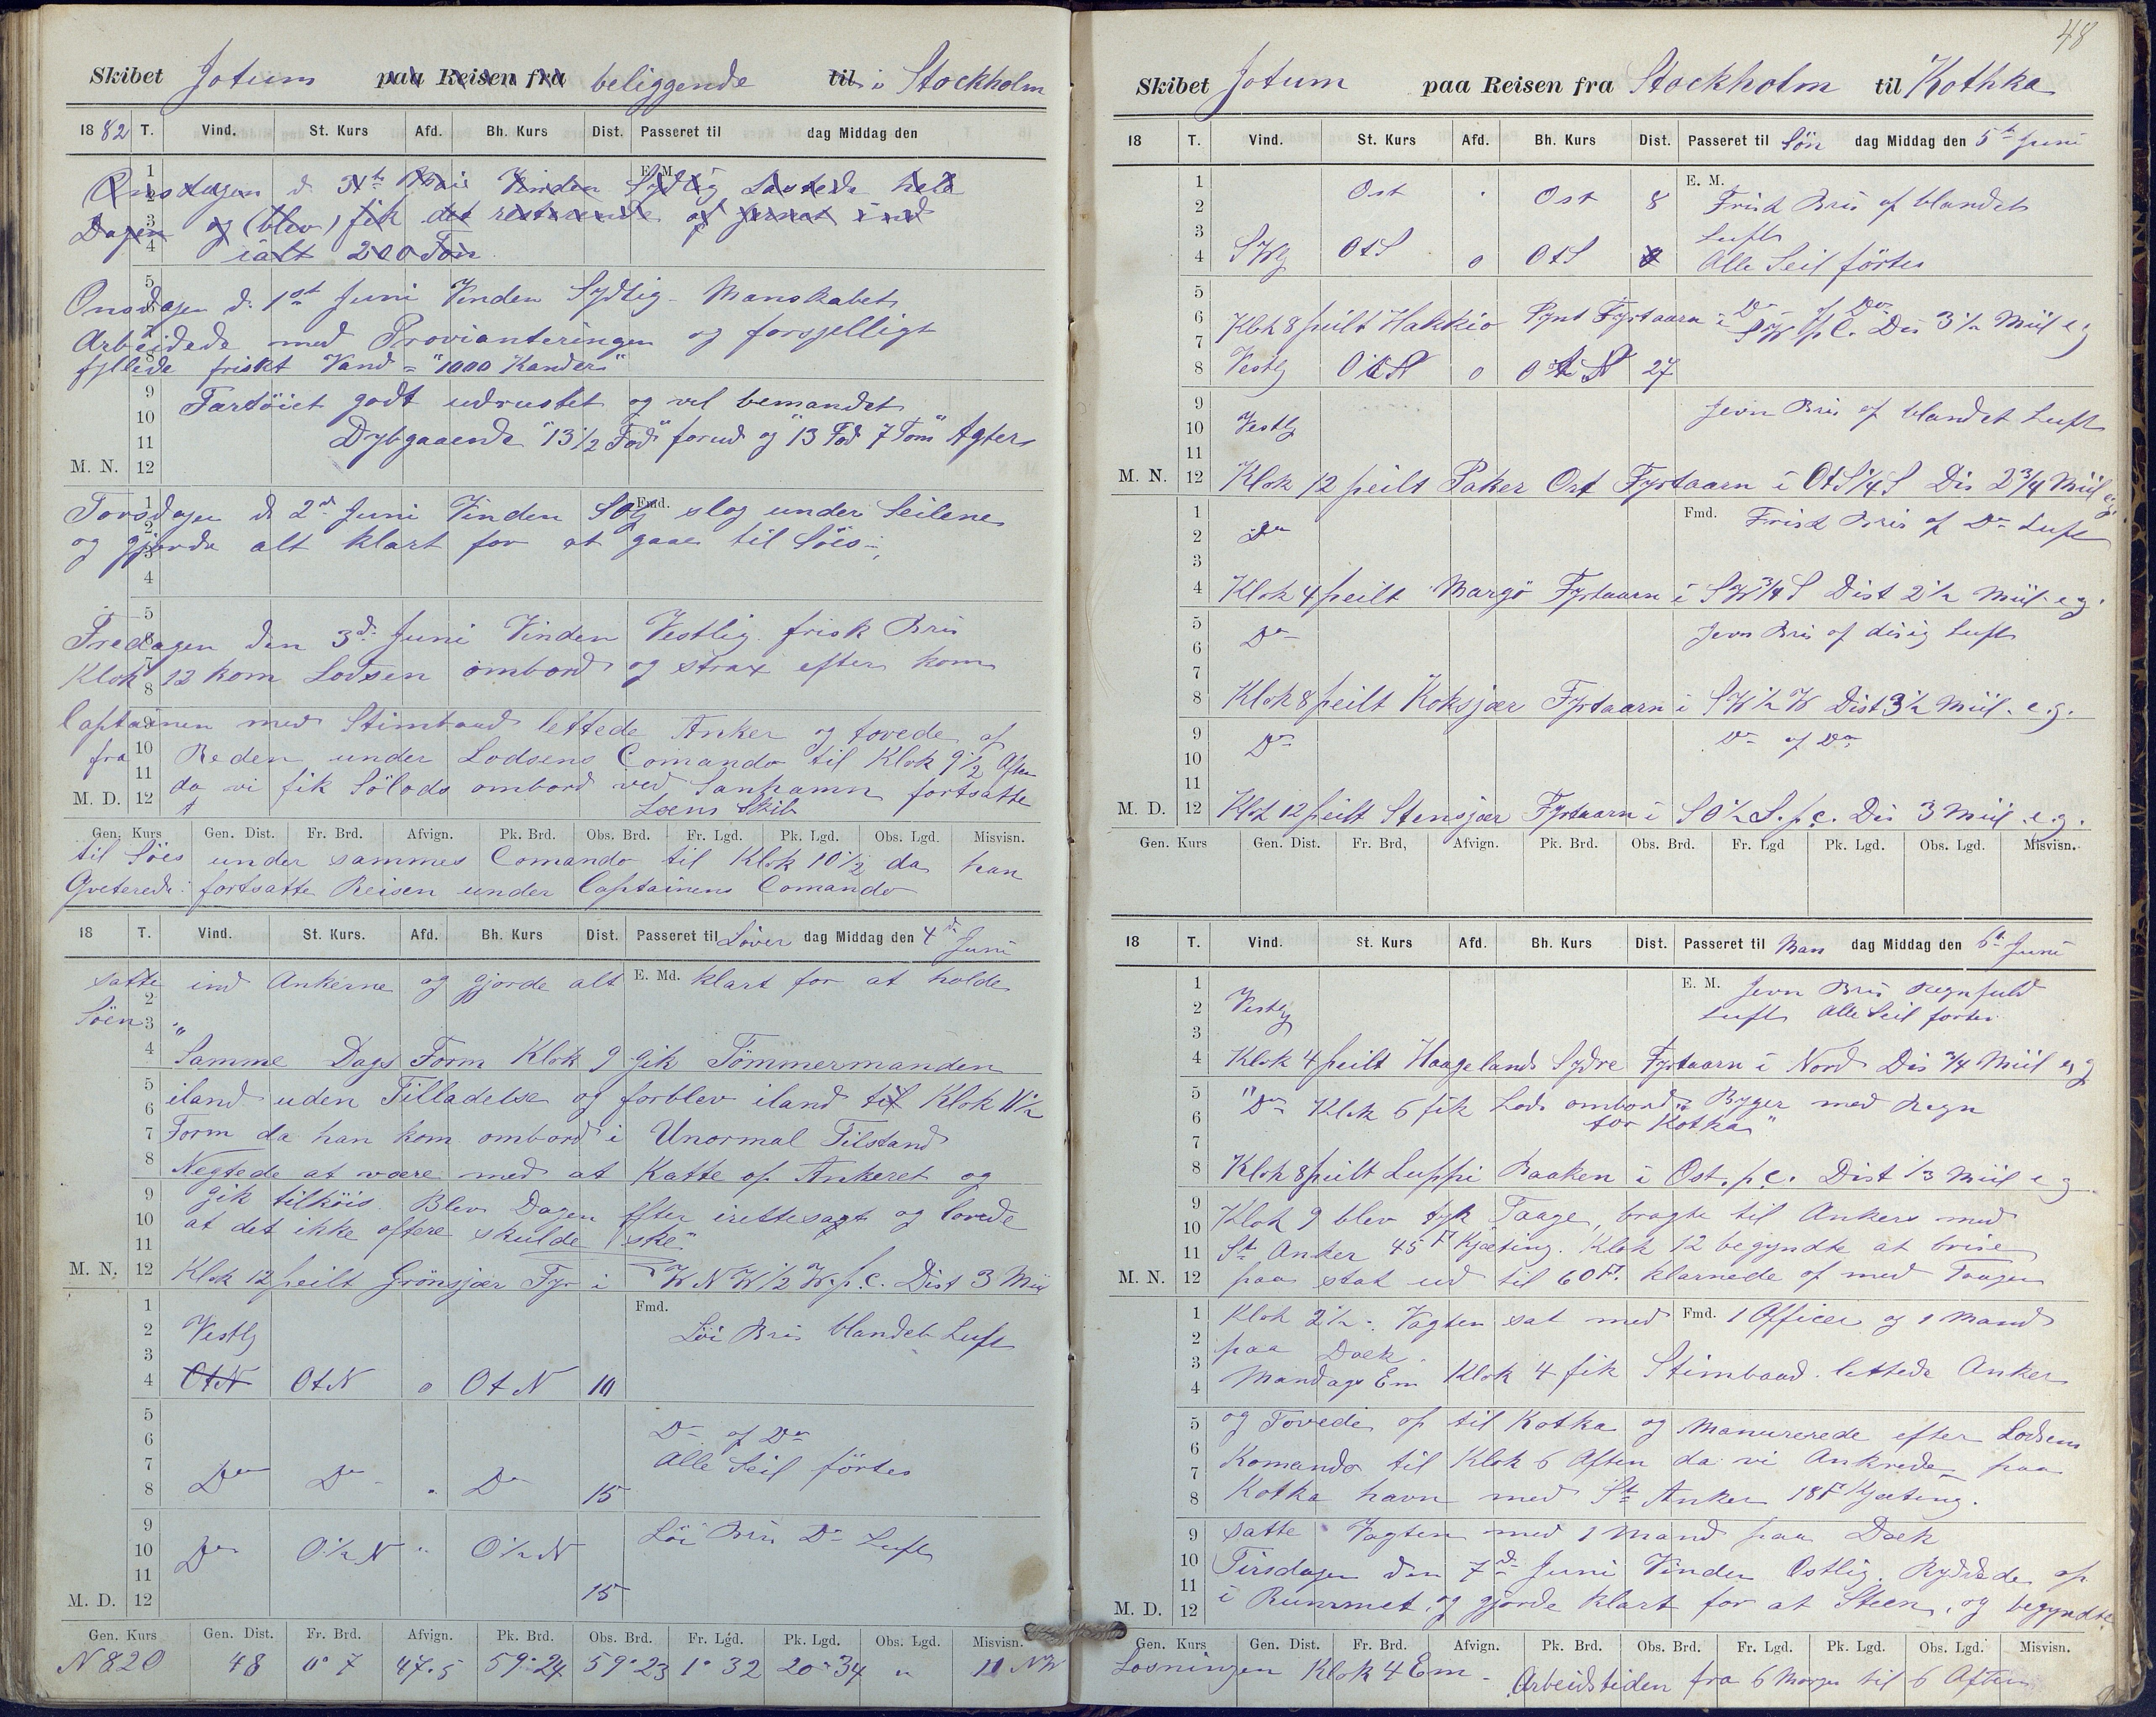 Skibet Jotum paa Reisen fra beliggende til i Stockholm
1882 T. Vind. St. Kurs Afd. Bh. Kurs Dist. Passeret til dag Middag den
E. M.
Onsdagen d. 31te Mai Vinden Sydlig Lastede hele
Dagen og (blev) fik det resterende af jernet ind
ialt 200 Ton
Onsdagen d. 1st Juni Vinden Sydlig Manskabet
Arbeidede med Provianteringen og forsjelligt
fyllede friskt Vand = "1000 Kander"
Fartöiet godt udrustet og vel bemandet
Dybgaaende "13 1/2 Fod" forud og "13 Fod 7 Tom" Agter
M. N. 12
Torsdagen d. 2d Juni Vinden SO Fmd. slog under Seilene
og gjorde alt klart for at gaae til Söes
Fredagen den 3d Juni Vinden Vestlig frisk Bris
Klok 12 kom Lodsen ombord og strax efter kom
Captainen med Stimbaad lettede Anker og tovede af
fra Reden under Lodsens Comando til Klok 9 1/2 Aften
da vi fik Sölods ombord ved Sanhamn fortsatte
M. D. 12 Loens Skib
Gen. Kurs Gen. Dist. Fr. Brd. Afvign. Pk. Brd. Obs. Brd. Fr. Lgd. Pk. Lgd. Obs. Lgd. Misvisn.
til Söes under sammes Comando til Klok 10 1/2 da han
Qveterede fortsatte Reisen under Captainens Comando
18 T. Vind. St. Kurs. Afd. Bh. Kurs Dist. Passeret til Löver dag Middag den 4de Juni
satte ind Ankerne og gjorde alt E. Md. klart for at holde
Söen "
Samme Dags Form Klok 9 gik Tömmermanden
iland uden Tilladelse og forblev iland til Klok 11 1/2
Form da han kom ombord i Unormal Tilstand
Negtede at være med at Katte op Ankeret og
gik tilköis. Blev Dagen Efter irettesagt og lovede
at det ikke oftere skulde ske"
M. N. 12 Klok 12 peilt Grönsjær Fyr i WNW 1/2 W. p.C. Dist 3 Miil
Fmd.
Vestlg Löi Bris blandet Luft
OtN OtN o OtN 10
Do og Do
Alle Seil förtes
Do Do " Do 15
Do O 1/2 N " O 1/2 N Löi Bris Do Luft
15
M. D. 12
Gen. Kurs Gen. Dist. Fr. Brd. Afvign. Pk. Brd. Obs. Brd. Fr. Lgd. Pk. Lgd. Obs. Lgd. Misvisn.
N 82 O 48 0° 7 47.5 59° 24 59° 23 1° 32 20° 34 " 11 NW
48
Skibet Jotum paa Reisen fra Stockholm til Kothka
18 T. Vind. St. Kurs Afd. Bh. Kurs Dist. Passeret til Sön dag Middag den 5te Juni
E. M.
Ost " Ost 8 Frisk Bris af blandet
Luft
SWlg OtS o OtS 8 Alle Seil förtes
Do og Do
Klok 8 peilt Hakkio Pynt Fyrtaarn i SW p C. Dis 3 1/2 Miil eg
Vestlg OtN o OtN 27
Vestlg Jevn Bris af blandet Luft
M. N. 12 Klok 12 peilt Paker Ort Fyrtaarn i OtS 1/4 S Dis 2 3/4 Miil eg.
Fmd. Frisk Bris af Do Luft
Do
Klok 4 peilt Margö Fyrtaarn i SW 3/4 S Dist 2 1/2 Miil e.g.
Do Jevn Bris af disig Luft
Klok 8 peilt Koksjær Fyrtaarn i SW 1/2 W Dist 3 1/2 Miil e.g.
Do Do og Do
M. D. 12 Klok 12 peilt Stensjær Fyrtaarn i SO 1/2 S. p.c. Dis 3 Miil e.g.
Gen. Kurs Gen. Dist. Fr. Brd, Afvign. Pk. Brd. Obs. Brd. Fr. Lgd Pk. Lgd. Obs. Lgd. Misvisn.
18 T. Vind. St. Kurs Afd. Bh. Kurs Dist. Passeret til Man dag Middag den 6te Juni
E. M. Jevn Bris Regnfuld
Vestlg Luft Alle Seil förtes
Klok 4 peilt Haageland Sydre Fyrtaarn i Nord Dis 3/4 Miil eg
"Do Klok 6 fik Lods ombord Byger med Regn
for Kotka"
Klok 8 peilt Luppi Baaken i Ost. p.C. Dist 1/3 Miil e g.
Klok 9 blev tyk Taage, bragte til Ankers med
St. Anker 45 F Kjæting. Klok 12 begyndte at brise
M. N. 12 paa stak ud til 60 F. klarnede af med Taagen
Klok 2 1/2 Vagten sat med Fmd. 1 Officer og 1 Mand
paa Dæk
Mandags Em Klok 4 fik Stimbaad. lettede Anker
og Tovede op til Kotka og Manurerede efter Lodsens
Komando til Klok 6 Aften da vi Ankrede paa
Kotka havn med St. Anker 18 F Kjæting.
satte Vagten med 1 Mand paa Dæk
Tirsdagen den 7d Juni Vinden Ostlig. Ryddede op
M. D. 12 i Rummet, og gjorde klart for at Steen, og begyndte
Gen. Kurs Gen. Dist. Fr. Brd. Afvign. Pk. Brd. Obs. Brd. Fr. Lgd. Pk. Lgd. Obs. Lgd. Misvisn.
Losningen Klok 4 Em. Arbeidstiden fra 6 Morgen til 6 Aften